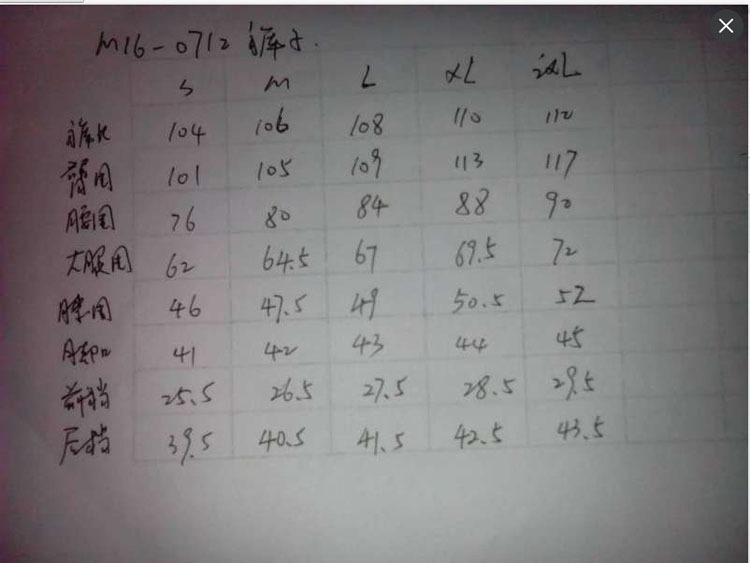 M16-0712 裤子.
S M L XL 2XL
裤长 104 106 108 110 112
臀围 101 105 109 113 117
腰围 76 80 84 88 90
大腿围 62 64.5 67 69.5 72
膝围 46 47.5 49 50.5 52
脚口 41 42 43 44 45
前裆 25.5 26.5 27.5 28.5 29.5
后裆 39.5 40.5 41.5 42.5 43.5